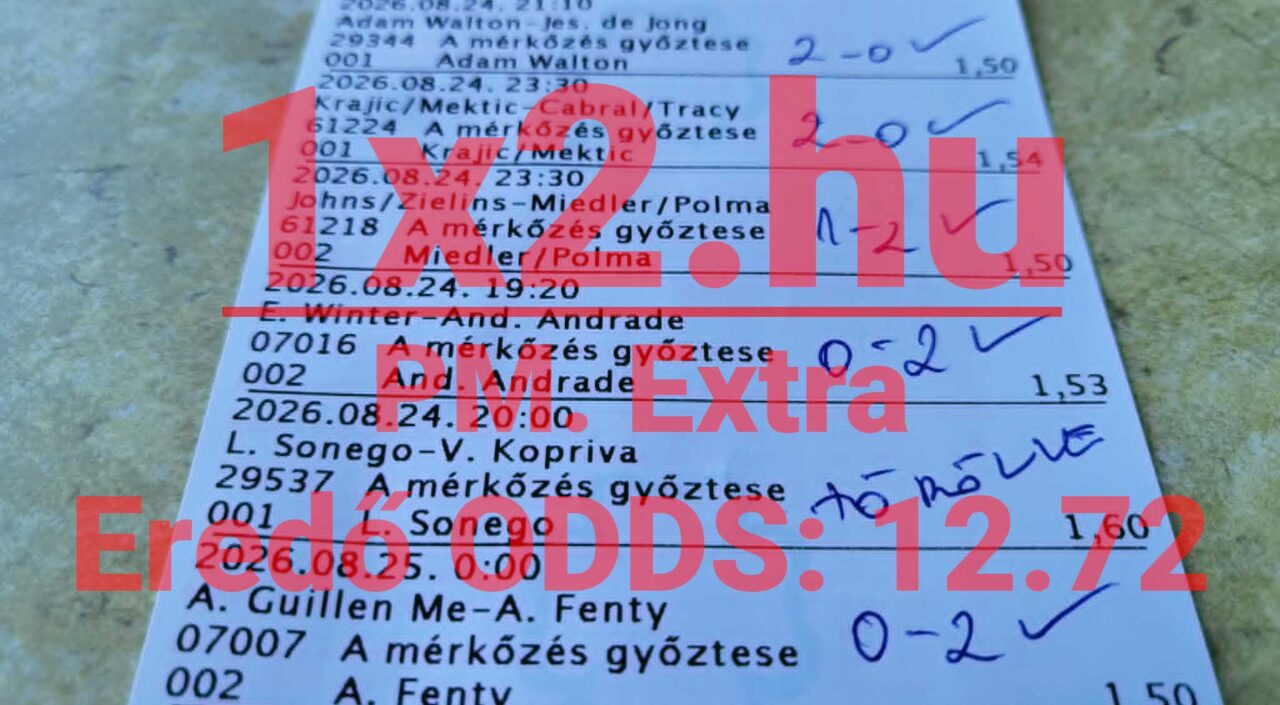 2026.08.24. 21:10
Adam Walton-Jes. de Jong
29344 A mérkőzés győztese 2-0 ✓
001 Adam Walton 1,50
2026.08.24. 23:30
Krajic/Mektic-Cabral/Tracy
61224 A mérkőzés győztese 2-0 ✓
001 Krajic/Mektic 1,54
2026.08.24. 23:30
Johns/Zielins-Miedler/Polma
61218 A mérkőzés győztese 1-2 ✓
002 Miedler/Polma 1,50
2026.08.24. 19:20
E. Winter-And. Andrade
07016 A mérkőzés győztese 0-2 ✓
002 And. Andrade 1,53
2026.08.24. 20:00
L. Sonego-V. Kopriva
29537 A mérkőzés győztese TÖRÖLVE
001 L. Sonego 1,60
2026.08.25. 0:00
A. Guillen Me-A. Fenty
07007 A mérkőzés győztese 0-2 ✓
002 A. Fenty 1,50
1x2.hu
PM. Extra
Eredő ODDS: 12.72